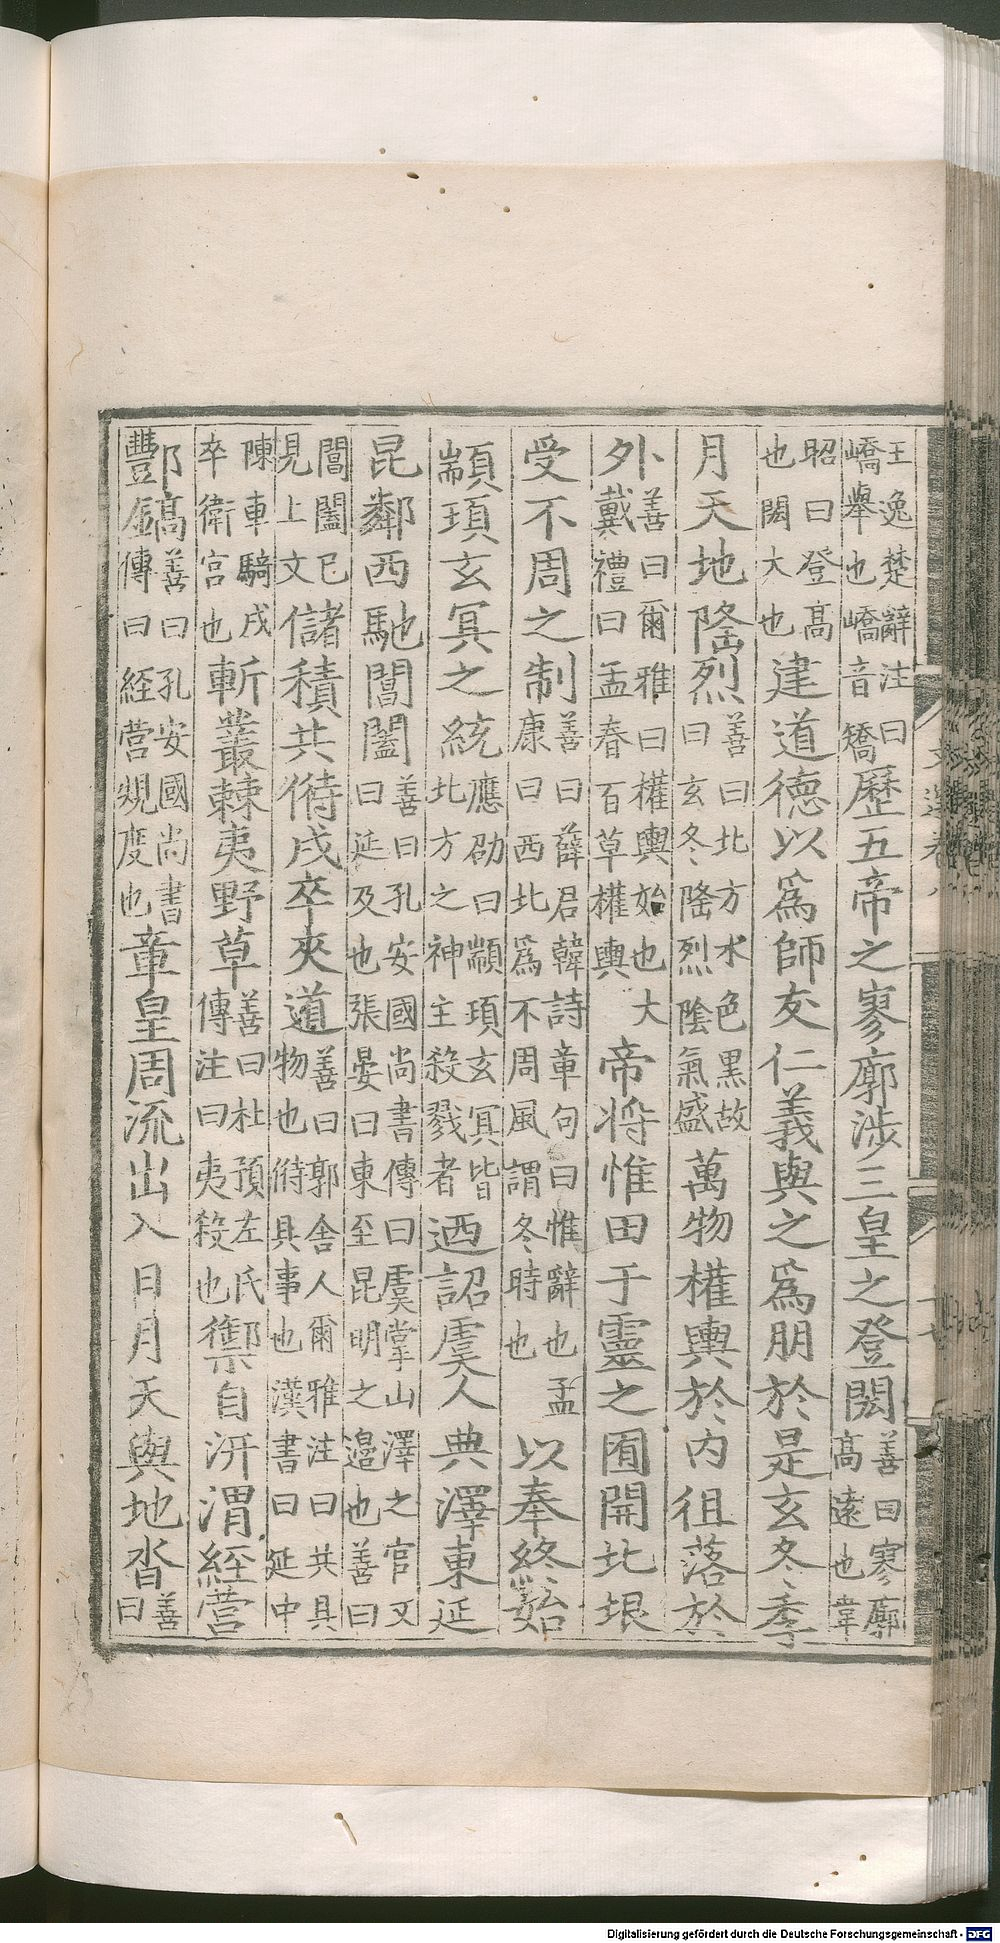 王逸楚辭注曰嶠舉也嶠音矯歷五帝之寥廓涉三皇之登閎善曰寥廓高遠也韋
昭曰登高也閎大也建道德以為師友仁義與之為朋於是玄冬季
月天地隆烈善曰北方水色黑故曰玄冬隆烈陰氣盛萬物權輿於內徂落於
外善曰爾雅曰權輿始也大戴禮曰孟春百草權輿帝將惟田于靈之囿開北垠
受不周之制善曰薛君韓詩章句曰惟辭也孟康曰西北為不周風謂冬時也以奉終始
顓頊玄冥之統應劭曰顓頊玄冥皆北方之神主殺戮者迺詔虞人典澤東延
昆鄰西馳閶闔善曰孔安國尚書傳曰虞掌山澤之官又曰延及也張晏曰東至昆明之邉也善曰
閶闔已見上文儲積共偫戍卒夾道善曰郭舍人爾雅注曰共具物也偫具事也漢書曰延中
陳車騎戍卒衛宮也斬叢棘夷野草善曰杜預左氏傳注曰夷殺也禦自汧渭經營
酆鎬善曰孔安國尚書傳曰經營規度也章皇周流出入日月天與地沓善曰
Digitalisierung gefördert durch die Deutsche Forschungsgemeinschaft - DFG